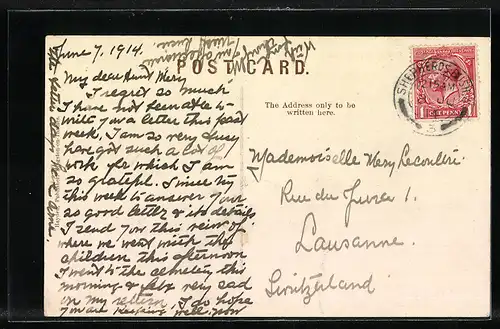 June 7, 1914.
My dear Aunt Mery
I regret so much
I have not been able to
write you a letter this past
week. I am so very busy
have got such a lot of
work for which I am
so grateful. I must try
this week to answer your
so good letter & its details
I send you this view of
where we went with the
children this afternoon
I went to the cemetery this
morning & felt very sad
on my return, I do hope
you are keeping well, now
POST CARD.
The Address only to be
written here.
Mademoiselle Mery
Rue du Jura 1.
Lausanne.
Switzerland
SHEPHERDS
ONE PENNY